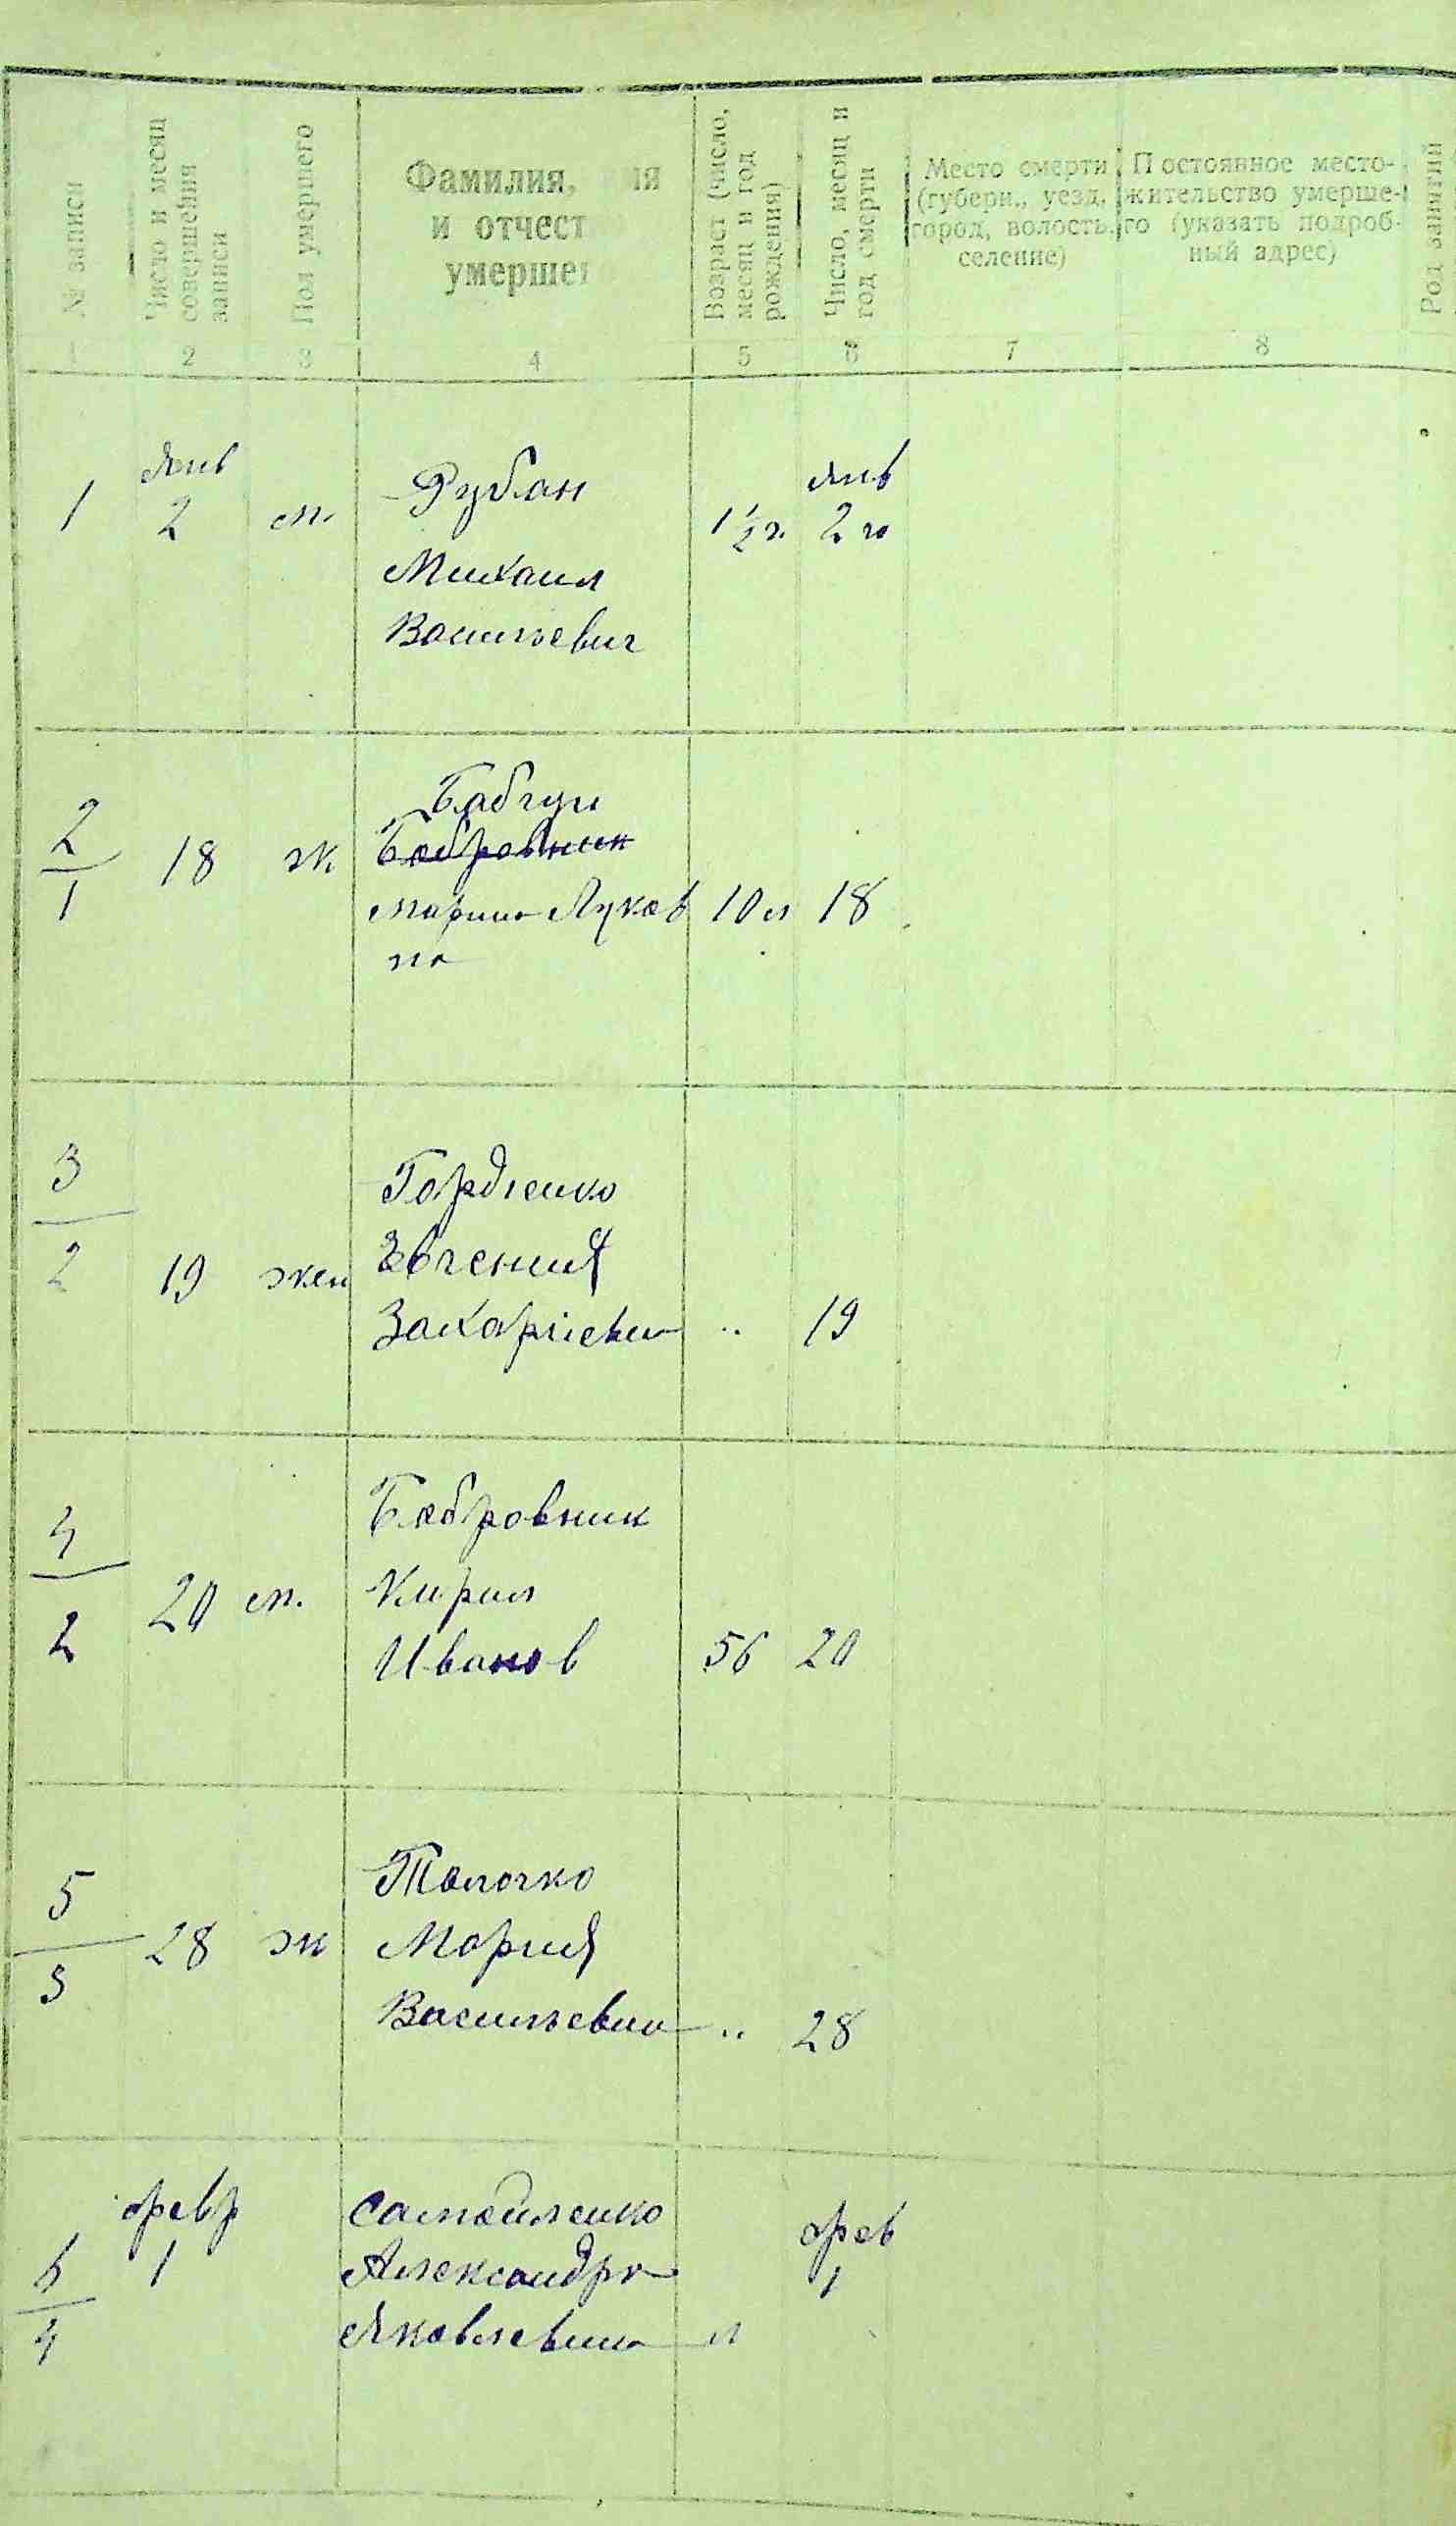 № записи
Число и месяц
совершения
записи
Пол умершего
Фамилия, имя
и отчест
умершег
Возраст (число,
месяц и год
рождения)
Число, месяц и
год смерти
Место смерти
(губерн., уезд,
город, волость,
селение)
Постоянное место-
жительство умерше-
го (указать подроб-
ный адрес)
Род занятий
1 2 3 4 5 6 7 8
Янв Янв
1 2 м. Рубан 1 1/2 г. 2 го
Михаил
Васильевич
Бабчун
2/1 18 ж Бобровник
Марина Луков 10 л 18
на
3/2 19 жен Гордіенко
Евгения
Захаріевна " 19
4/2 20 м. Бобровник
Кирил
Иванов 56 20
5/3 28 ж Толочко
Мория
Васильевна " 28
февр Самойленко фев
6/4 1 Александра 1
Яковлевна л